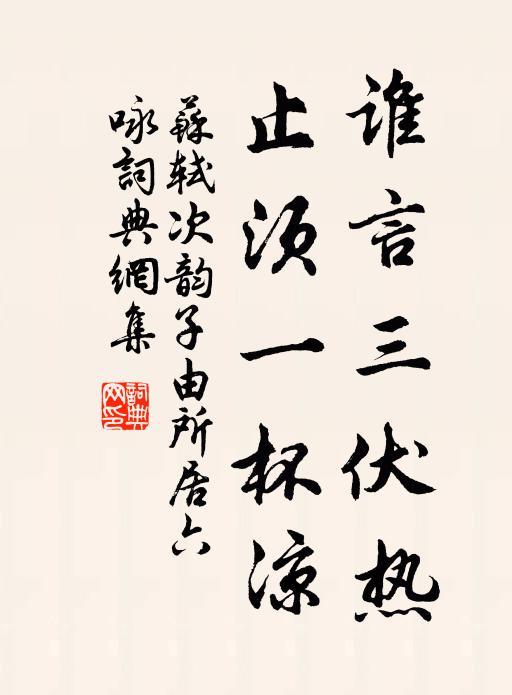 谁言三伏热
止须一杯凉
蘇軾次韵子由所居六
咏詞典網集
詞典
网印